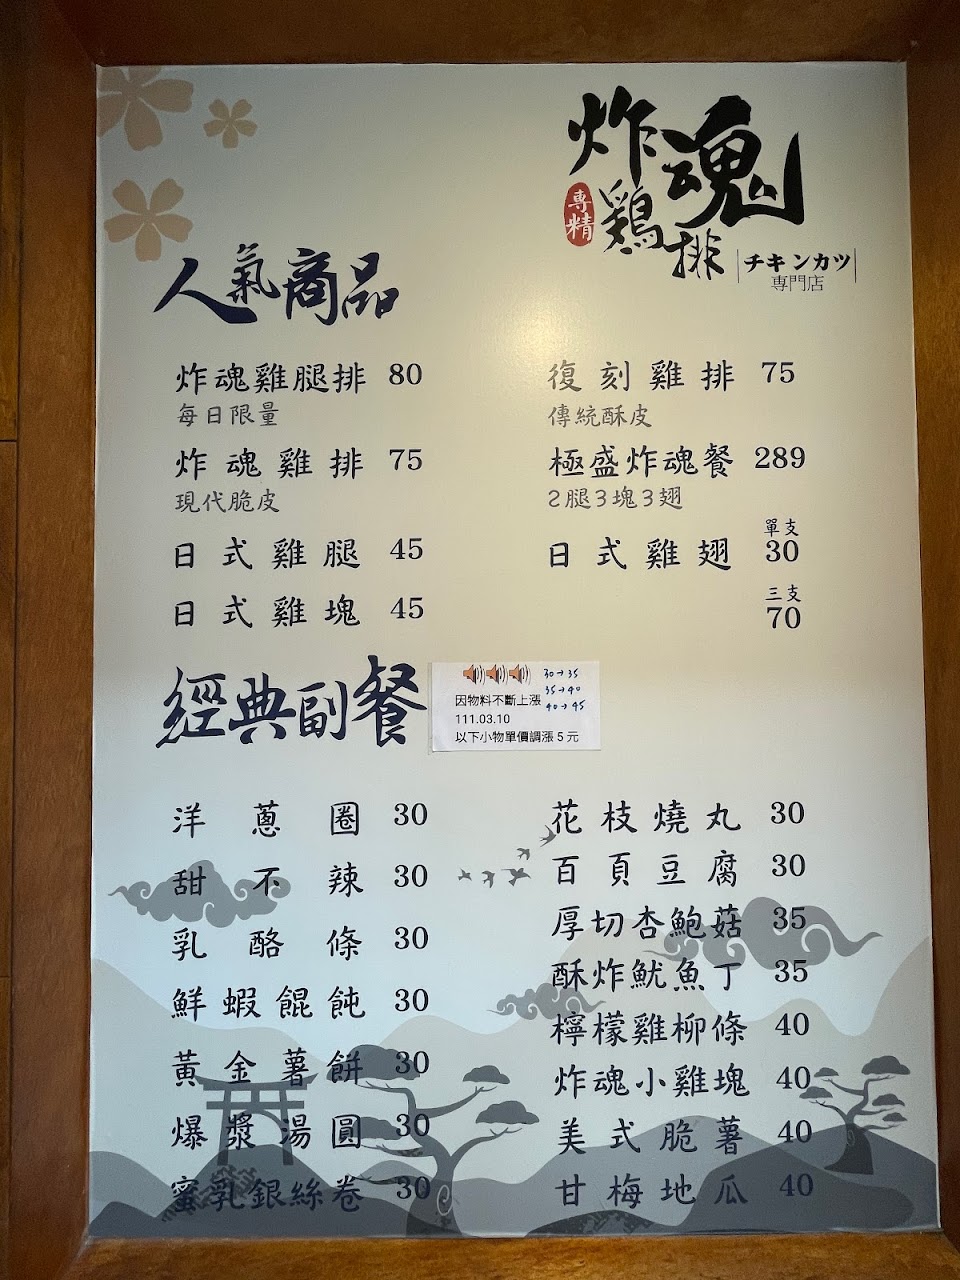 炸魂
專精
鷄排
チキンカツ
専門店
人氣商品
炸魂雞腿排 80
每日限量
炸魂雞排 75
現代脆皮
日式雞腿 45
日式雞塊 45
復刻雞排 75
傳統酥皮
極盛炸魂餐 289
2腿3塊3翅
日式雞翅 單支 30
三支 70
經典副餐
30→35
35→40
40→45
因物料不斷上漲
111.03.10
以下小物單價調漲5元
洋蔥圈 30
甜不辣 30
乳酪條 30
鮮蝦餛飩 30
黃金薯餅 30
爆漿湯圓 30
蜜乳銀絲卷 30
花枝燒丸 30
百頁豆腐 30
厚切杏鮑菇 35
酥炸魷魚丁 35
檸檬雞柳條 40
炸魂小雞塊 40
美式脆薯 40
甘梅地瓜 40